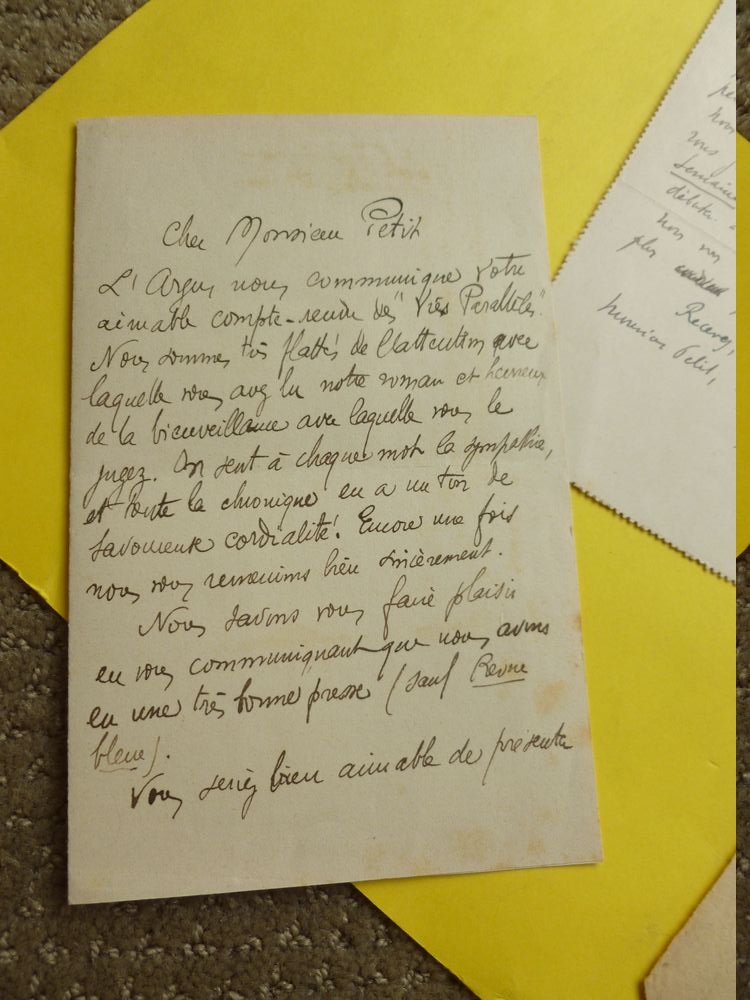 Cher Monsieur Petit
L'Argus nous communique votre
aimable compte-rendu des "Vies Parallèles".
Nous sommes très flattés de l'attention avec
laquelle vous avez lu notre roman et heureux
de la bienveillance avec laquelle vous le
jugez. On sent à chaque mot la sympathie,
et toute la chronique en a un ton de
savoureuse cordialité! Encore une fois
nous vous remercions bien sincèrement.
Nous savons vous faire plaisir
en vous communiquant que nous avons
eu une très bonne presse (sauf Revue
bleue).
Vous seriez bien aimable de présenter
nous
vous
semaine
débute
nous
plus
Recevez,
Monsieur Petit,